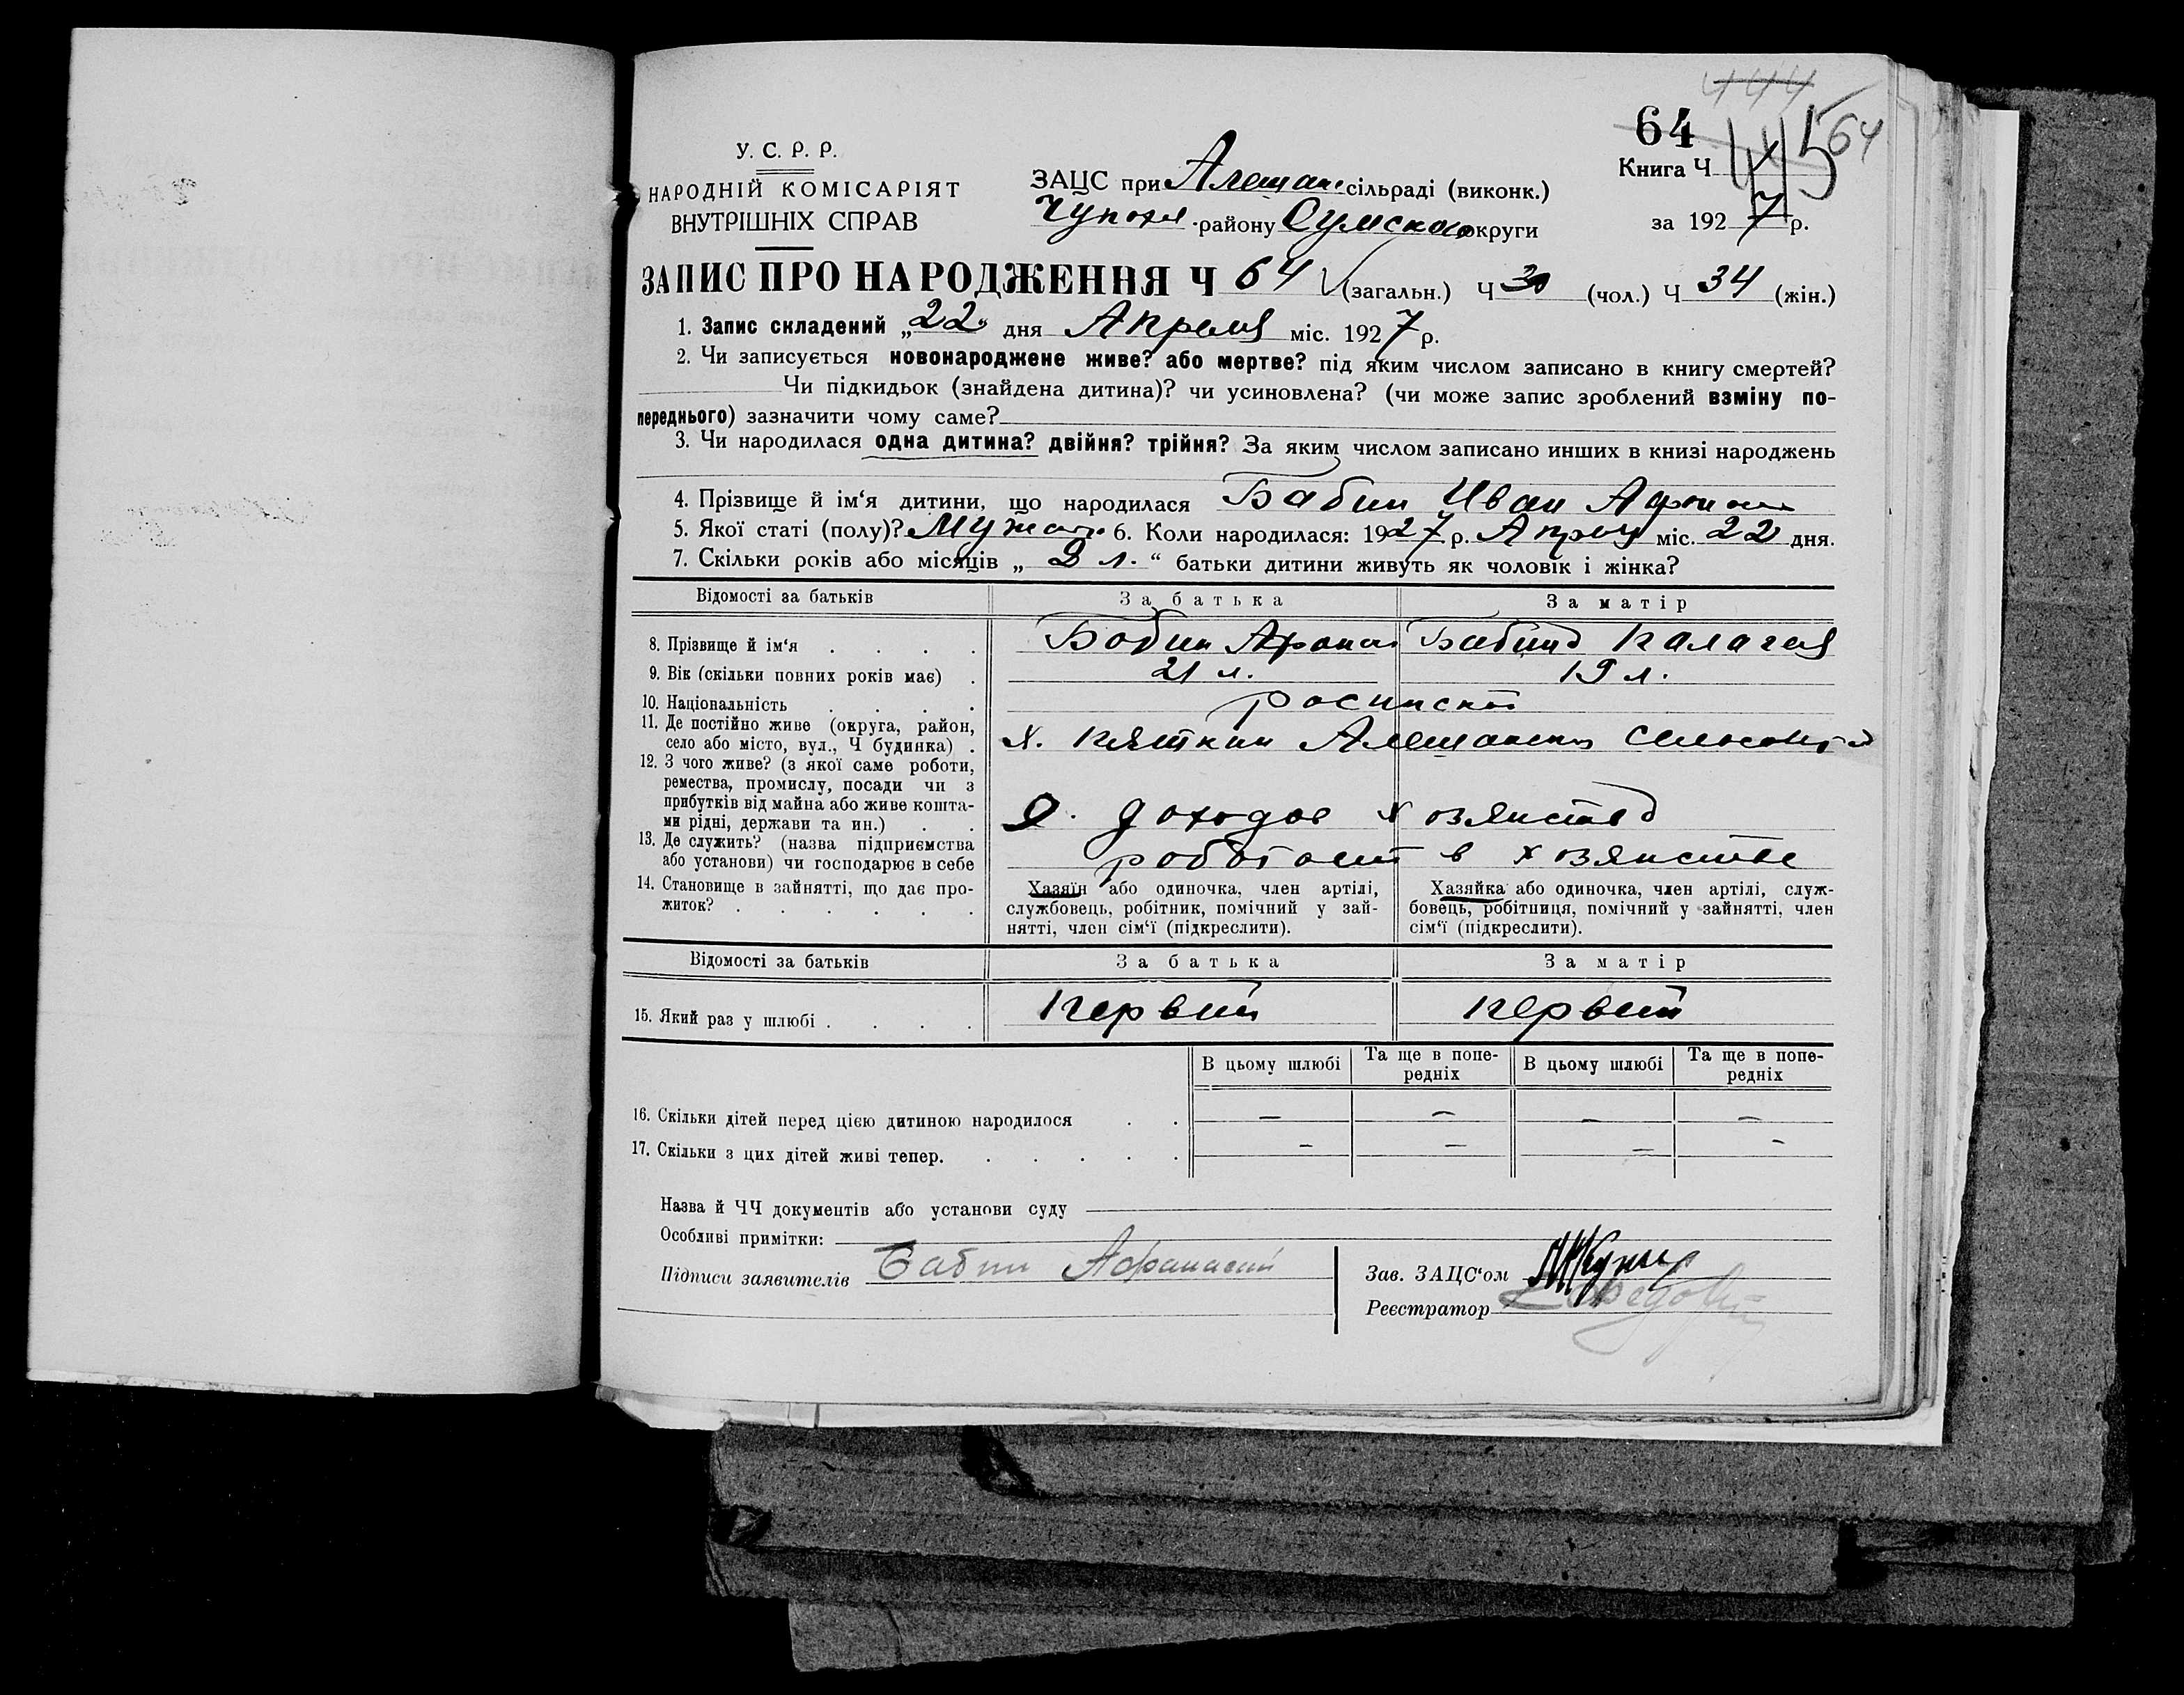 444
64
145 64
У. С. Р. Р.
НАРОДНІЙ КОМІСАРІЯТ
ВНУТРІШНІХ СПРАВ
ЗАЦС при Алешан сільраді (виконк.)
району Сумской округи
Книга Ч
за 1927 р.
ЗАПИС ПРО НАРОДЖЕННЯ Ч 64 (загальн.) Ч 30 (чол.) Ч 34 (жін.)
1. Запис складений „22“ дня Апреля міс. 1927 р.
2. Чи записується новонароджене живе? або мертве? під яким числом записано в книгу смертей?
Чи підкидьок (знайдена дитина)? чи усиновлена? (чи може запис зроблений взміну по-
переднього) зазначити чому саме?
3. Чи народилася одна дитина? двійня? трійня? За яким числом записано инших в книзі народжень
4. Прізвище й ім‘я дитини, що народилася Бабин Иван Афанас
5. Якої статі (полу)? Мужск. 6. Коли народилася: 1927 р. Апреля міс. 22 дня.
7. Скільки років або місяців „ 2 л. “ батьки дитини живуть як чоловік і жінка?
Відомості за батьків За батька За матір
8. Прізвище й ім‘я Бабин Афанас Бабина Палагея
9. Вік (скільки повних років має) 21 л. 19 л.
10. Національність
11. Де постійно живе (округа, район,
село або місто, вул., Ч будинка) х.
12. З чого живе? (з якої саме роботи,
ремества, промислу, посади чи з
прибутків від майна або живе кошта-
ми рідні, держави та ин.) доходов хозяиства
13. Де служить? (назва підприємства
або установи) чи господарює в себе работает в хозяистве
14. Становище в зайнятті, що дає про-
житок?
Хазяїн або одиночка, член артілі,
службовець, робітник, помічний у зай-
нятті, член сім‘ї (підкреслити).
Хазяйка або одиночка, член артілі, служ-
бовець, робітниця, помічний у зайнятті, член
сім‘ї (підкреслити).
Відомості за батьків За батька За матір
15. Який раз у шлюбі Первий Первий
В цьому шлюбі Та ще в попе-
редніх В цьому шлюбі Та ще в попе-
редніх
16. Скільки дітей перед цією дитиною народилося — — — —
17. Скільки з цих дітей живі тепер. — — — —
Назва й ЧЧ документів або установи суду
Особливі примітки:
Підписи заявителів Бабин Афанасий
Зав. ЗАЦС‘ом
Реєстратор